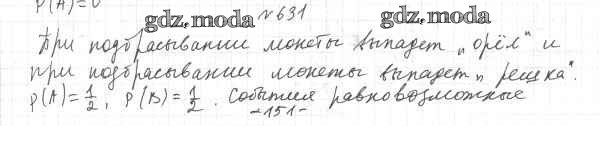 P(A)=0
gdz.moda №631 gdz.moda
При подбрасывании монеты выпадет „орёл" и
при подбрасывании монеты выпадет „решка".
P(A)=1/2, P(B)=1/2. События равновозможные
-151-